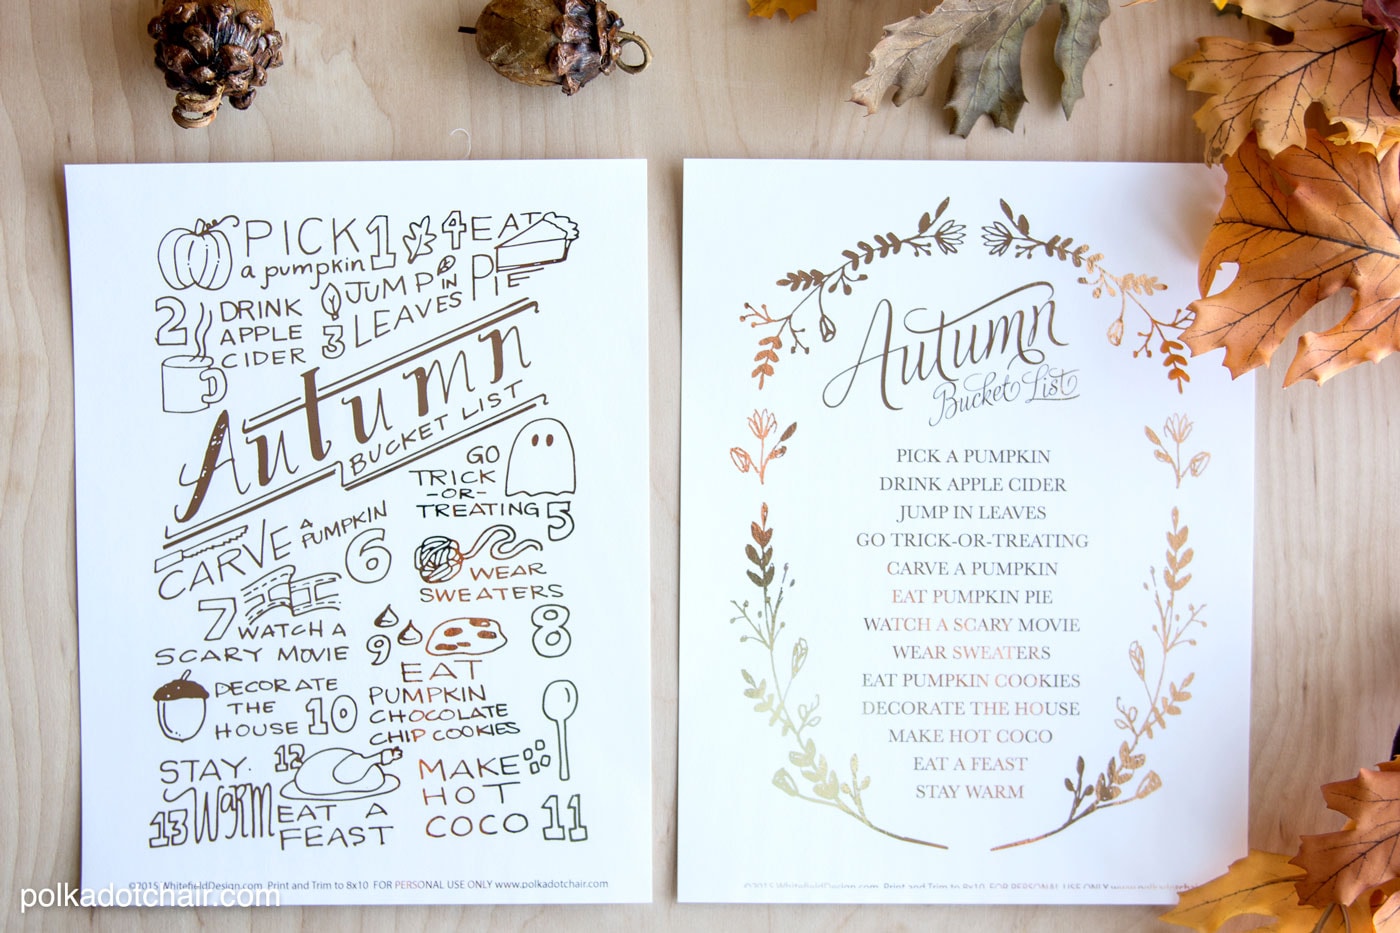 PICK
a pumpkin
1
4 EAT
PIE
2 DRINK
APPLE
CIDER
3 JUMP IN
LEAVES
Autumn
BUCKET LIST
GO
TRICK
-OR-
TREATING 5
CARVE A
PUMPKIN
6
WEAR
SWEATERS
8
7 WATCH A
SCARY MOVIE
9
EAT
PUMPKIN
CHOCOLATE
CHIP COOKIES
DECORATE
THE
HOUSE 10
12
STAY
WARM
13
EAT A
FEAST
MAKE
HOT
COCO 11
©2015 WhitefieldDesign.com Print and Trim to 8x10 FOR PERSONAL USE ONLY www.polkadotchair.com
Autumn
Bucket List
PICK A PUMPKIN
DRINK APPLE CIDER
JUMP IN LEAVES
GO TRICK-OR-TREATING
CARVE A PUMPKIN
EAT PUMPKIN PIE
WATCH A SCARY MOVIE
WEAR SWEATERS
EAT PUMPKIN COOKIES
DECORATE THE HOUSE
MAKE HOT COCO
EAT A FEAST
STAY WARM
©2015 WhitefieldDesign.com Print and Trim to 8x10 FOR PERSONAL USE ONLY
polkadotchair.com